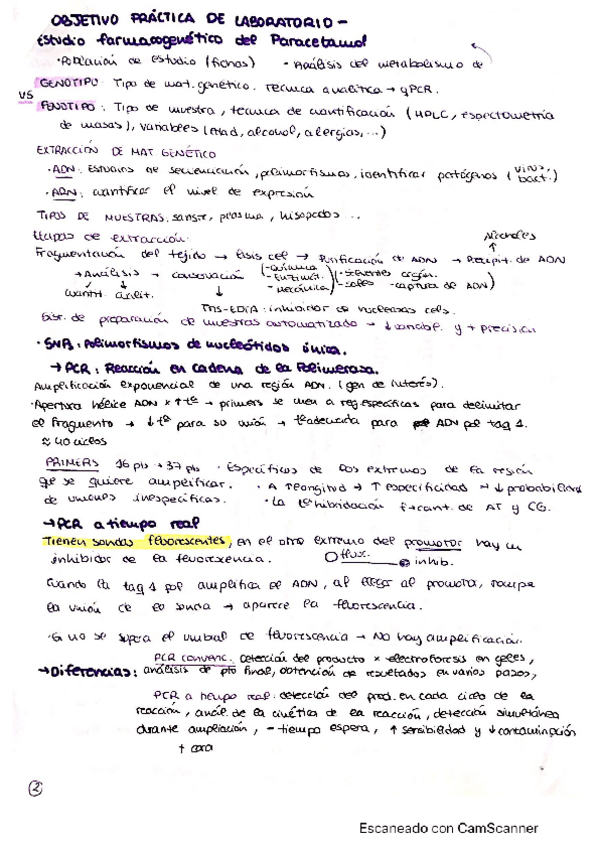 OBJETIVO PRÁCTICA DE LABORATORIO -
Estudio farmacogenético del Paracetamol
·Población de estudio (fichas) · Análisis del metabolismo de
GENOTIPO: Tipo de mat. genético. Técnica analítica → qPCR.
VS
FENOTIPO: Tipo de muestra, técnica de cuantificación (HPLC, espectometría
de masas), variables (edad, alcohol, alergias, ...)
EXTRACCIÓN DE MAT GENÉTICO
·ADN: Estudios de secuenciación, polimorfismos, identificar patógenos (virus, bact.)
·ARN: cuantificar el nivel de expresión
TIPOS DE MUESTRAS: sangre, plasma, hisopados ...
Etapas de extracción: Alcoholes
Fragmentación del tejido → Lisis cel → Purificación de ADN → Precipit. de ADN
→ Análisis → conservación (-química -enzimát. -mecánica) (-solventes orgán. -sales -captura de ADN)
cuantit. cualit. TRIS-EDTA: inhibidor de nucleasas cels.
Sist. de preparación de muestras automatizado → ↓contab. y + precisión
·SNP: Polimorfismos de nucleótidos única.
→PCR: Reacción en cadena de la Polimerasa.
Amplificación exponencial de una región ADN. (gen de interés).
·Apertura hélice ADN x ↑tª → primers se unen a reg. específicas para delimitar
el fragmento → ↓tª para su unión → tª adecuada para ADN pol taq 1.
≈ 40 ciclos
PRIMERS 16 pb → 37 pb · Específicos de los extremos de la región
que se quiere amplificar. · A + longitud → ↑ especificidad ≈ ↓ probabilidad
de uniones inespecíficas. · La tª hibridación f → cant. de AT y CG.
→PCR a tiempo real
Tienen sondas fluorescentes, en el otro extremo del promotor hay un
inhibidor de la fluorescencia. fluor. inhib.
Cuando la taq 1 pol amplifica el ADN, al llegar al promotor, rompe
la unión de la sonda → aparece la fluorescencia.
·Si no se supera el umbral de fluorescencia → No hay amplificación.
PCR convenc. Detección del producto x electroforesis en geles,
→Diferencias: análisis de pto final, obtención de resultados en varios pasos,
PCR a tiempo real: detección del prod. en cada ciclo de la
reacción, anál. de la cinética de la reacción, detección simultánea
durante ampliación, - tiempo espera, ↑ sensibilidad y ↓ contaminación
+ cara
2
Escaneado con CamScanner